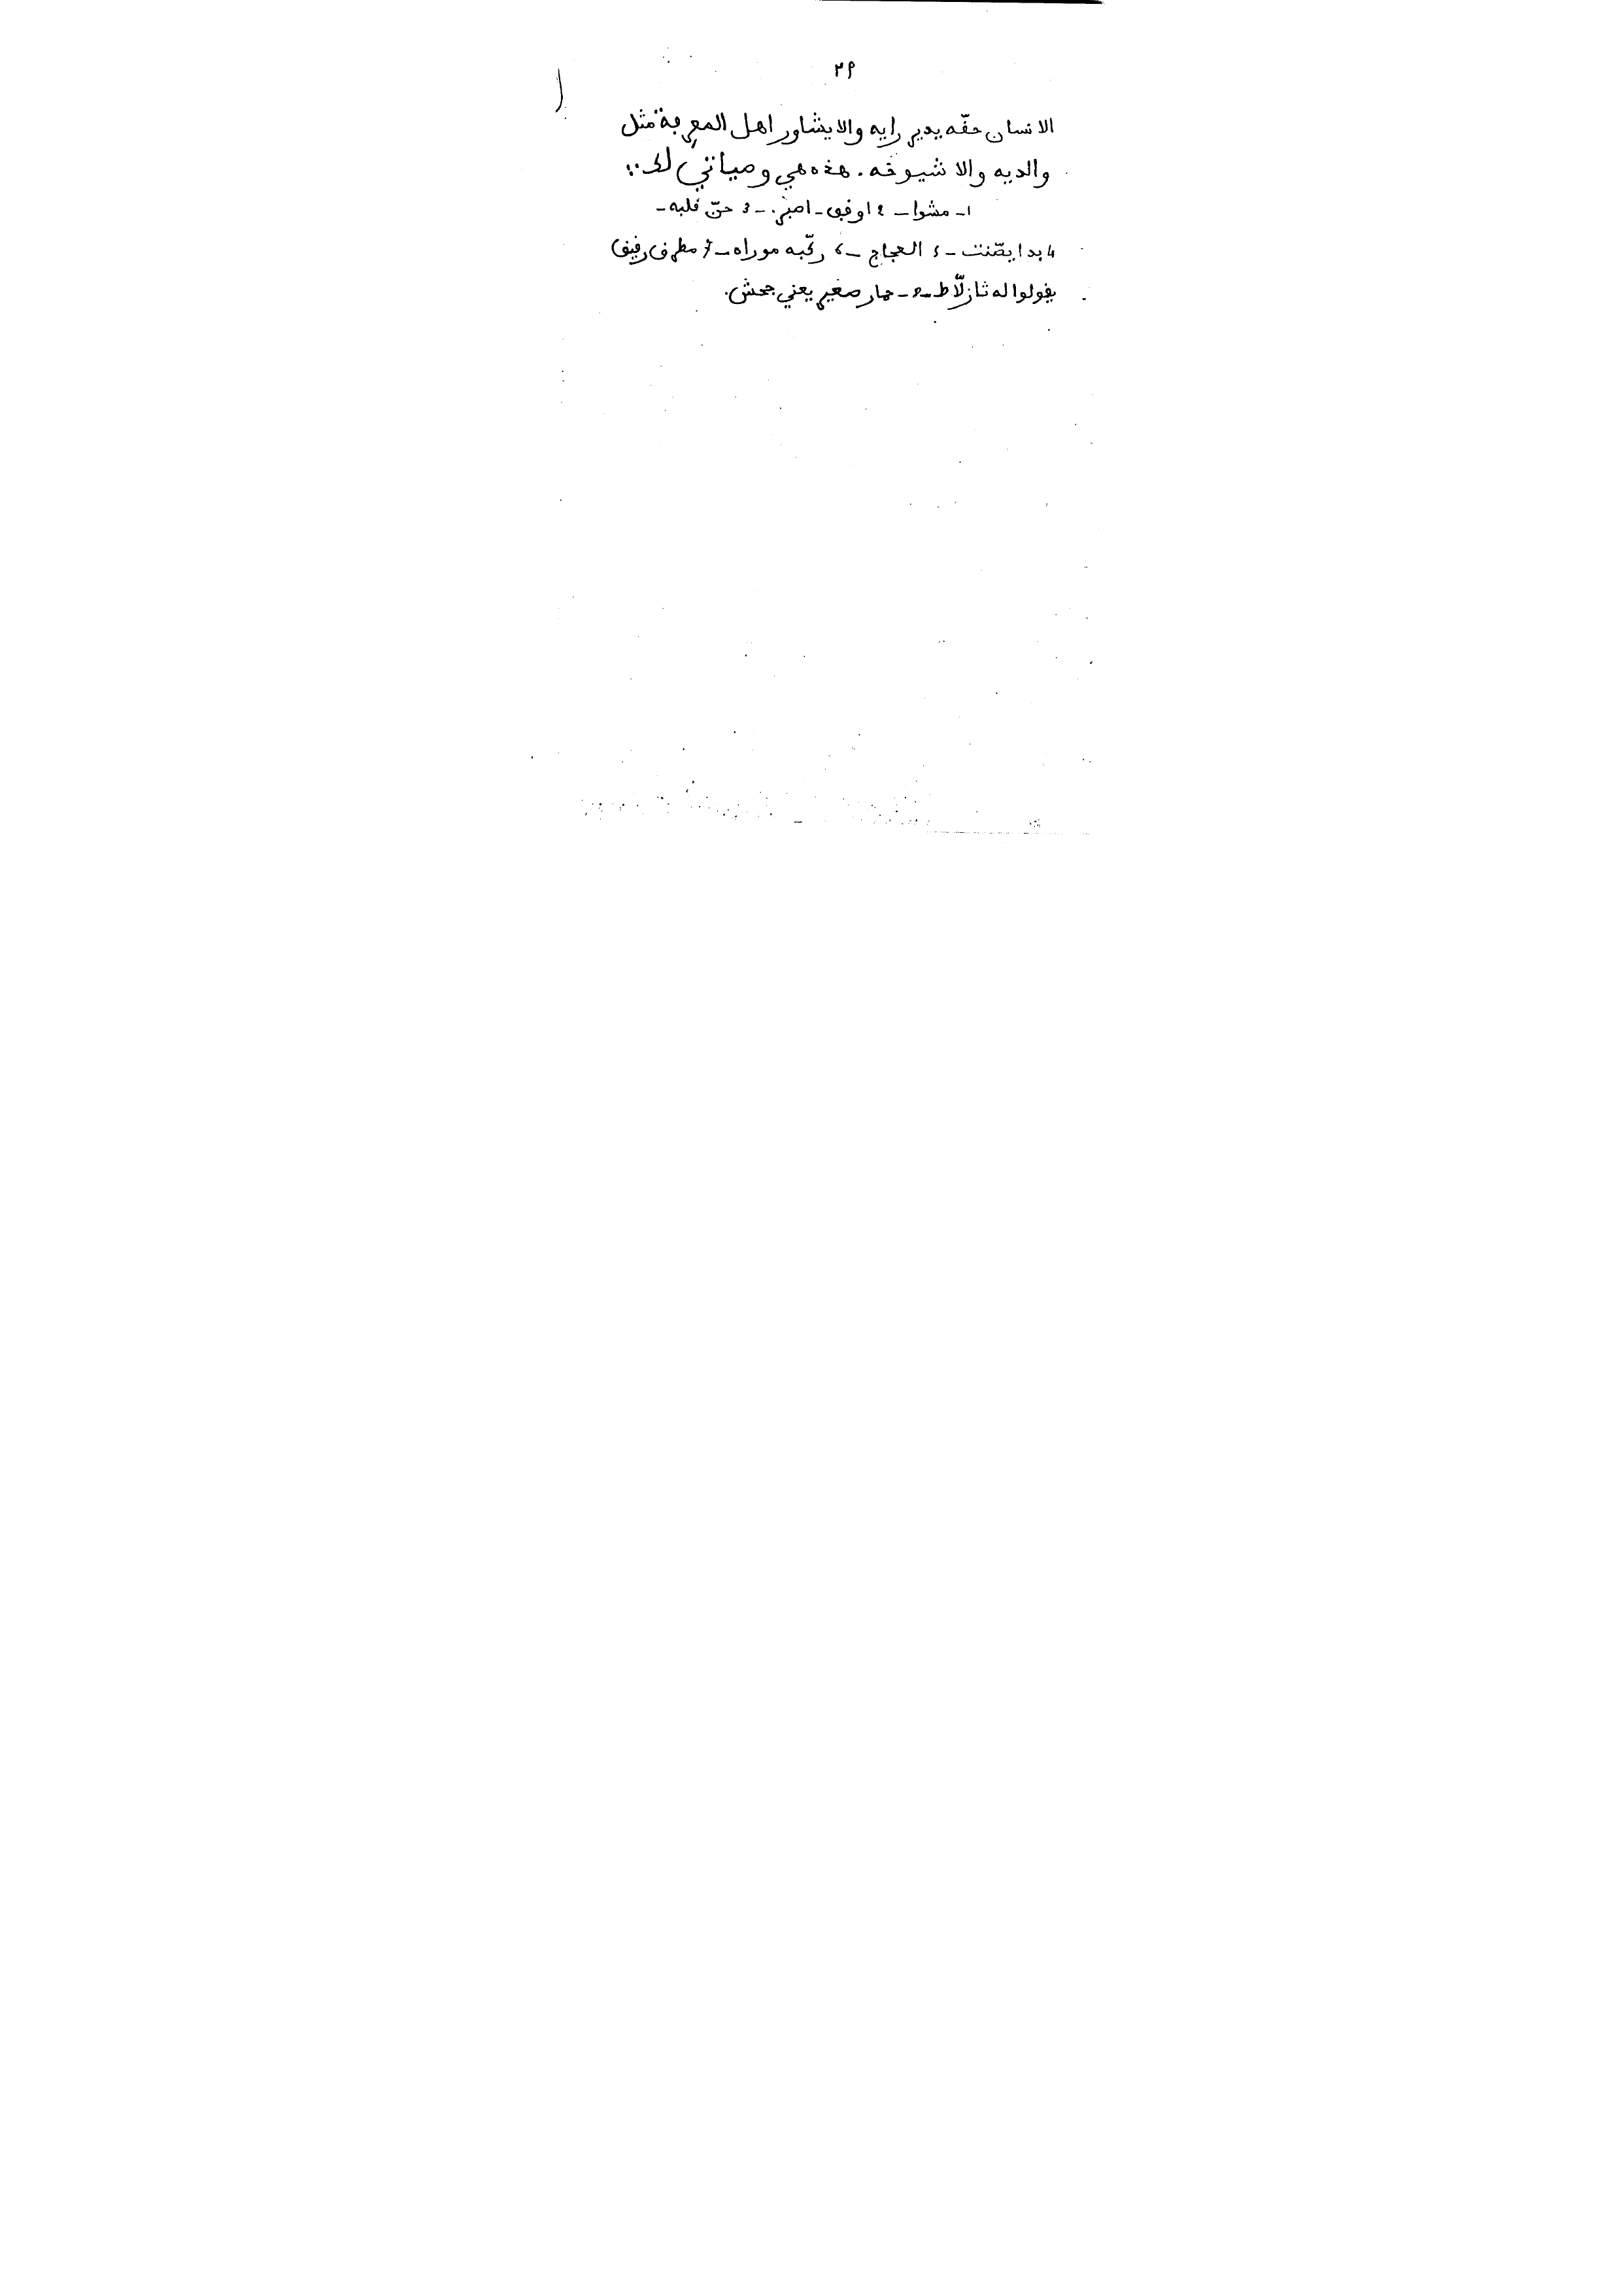 ٢٩
الانسان حقّه يدير رايه والا يشاور اهل المعرفة مثل
والديه والا شيوخه. هذه هي وصياتي لك..
١- مشوا - 2 اوقف - اصبر. - 3 حنّ قلبه -
4 بدا يصّنت - 5 العجاج - 6 ركّبه موراه - 7 مطرق رقيق
يقولوا له تازلّاط - 8 - حمار صغير يعني جحش.